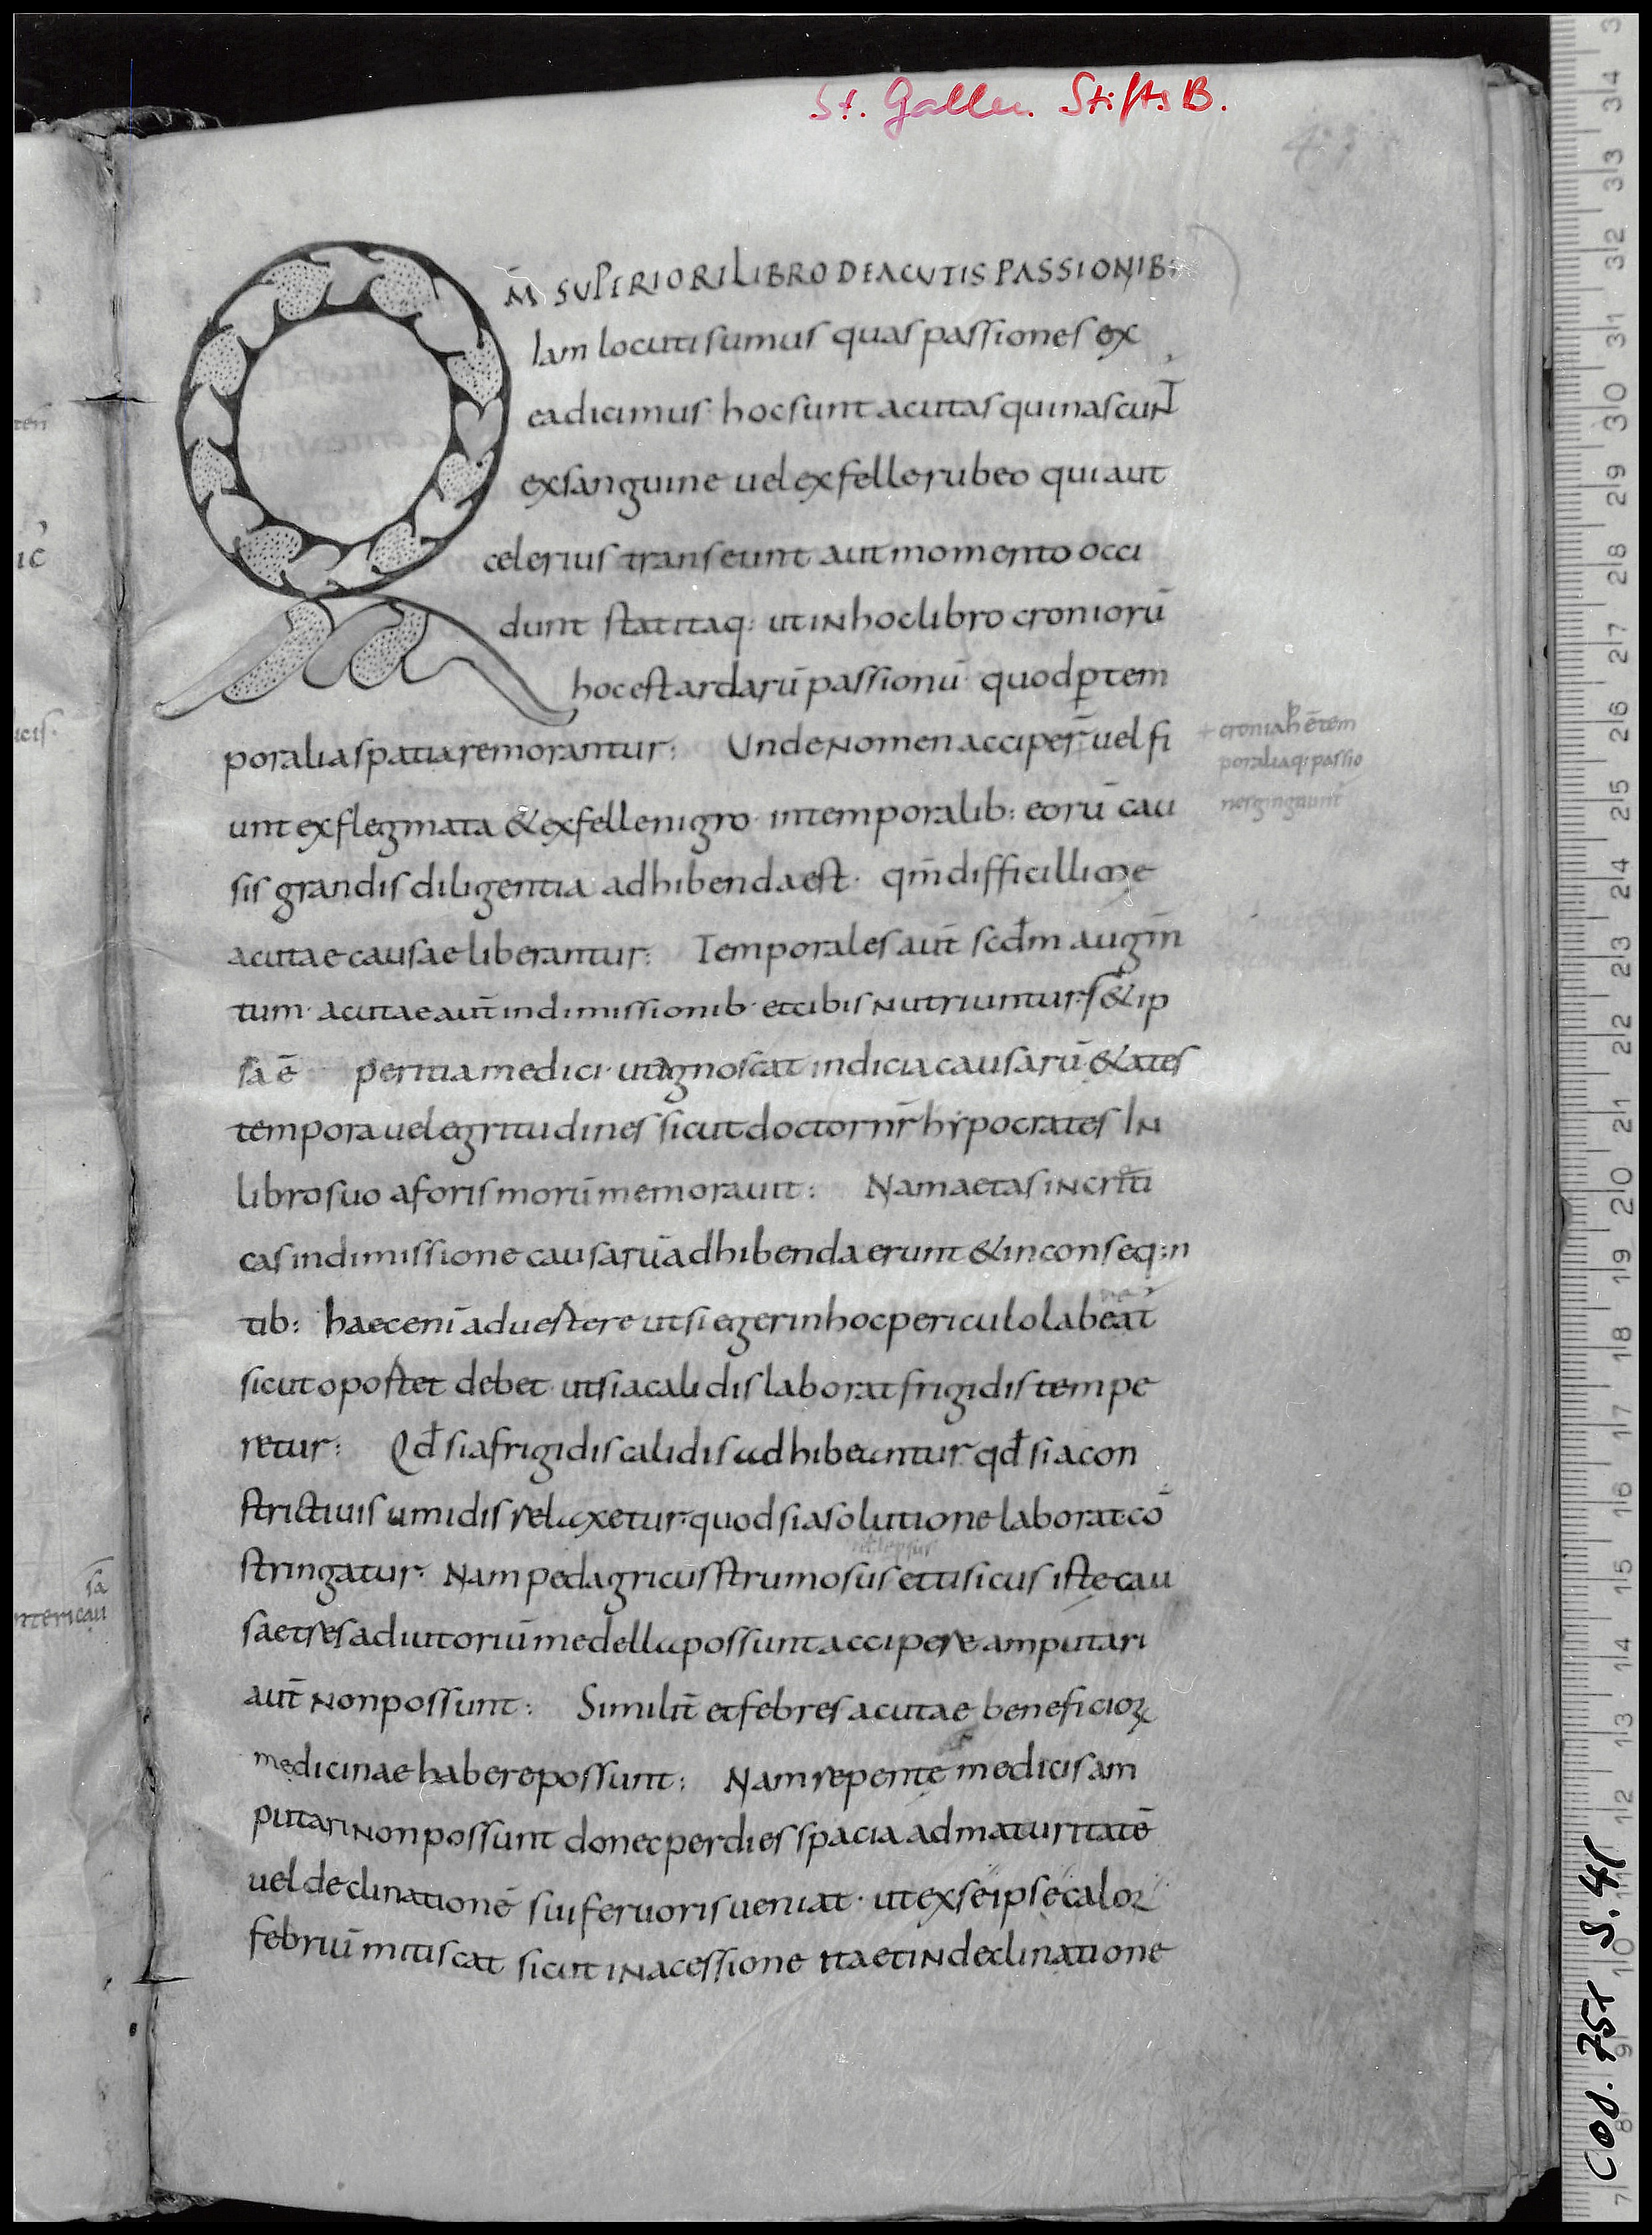 St. Gallen. Stifts B.
QM̄ SUPERIORI LIBRO DE ACUTIS PASSIONIB:
Iam locuti sumus quas passiones ox
eadicimus· hoc sunt acutas qui nascuNT̄
ex sanguine uel ex felle rubeo qui aut
celerius transeunt aut momento occi
dunt statitaq: ut in hoc libro cronioru̅
hoc est ardaru̅ passionu̅· quod ꝑ tem
poralia spatia remorantur: Unde nomen acciper̄ uel fi
unt ex flegmata & ex felle nigro· in temporalib: eoru̅ cau
sis grandis diligentia adhibenda est· qm̅ difficillime
acutae causae liberantur: Temporales aut̅ scd̅m augm̅
tum· acutae aut̅ in dimissionib· et cibis nutriuntur· s& ip
sa e̅ peritia medici· ut agnoscat indicia causaru̅ & ates
tempora uel egritudines sicut doctor nr̅ hypocrates In
libro suo aforismoru̅ memorauit: Nam aetas in criti
cas in dimissione causaru̅ adhibenda erunt & in conseq:n
tib: haec eni̅ aduertere ut si eger in hoc periculo labeat̅
sicut oportet debet· ut si a calidis laborat frigidis tempe
retur: Qd̅ si a frigidis calidis adhibeantur· qd̅ si a con
strictiuis umidis relaxetur· quod si a solutione laborat co̅
stringatur· Nam pedagricus strumosus et tisicus iste cau
sae tres adiutoriu̅ medella possunt accipere amputari
aut̅ non possunt: Similit̅ et febres acutae beneficioꝝ
medicinae habere possunt: Nam repente medicis am
putari non possunt donec per dies spacia ad maturitate̅
uel declinatione̅ sui feruoris ueniat· ut ex se ipse calor
febriu̅ mitiscat sicut in acessione ita et in declinatione
poraliaq: passio
Cod. 751 S. 41